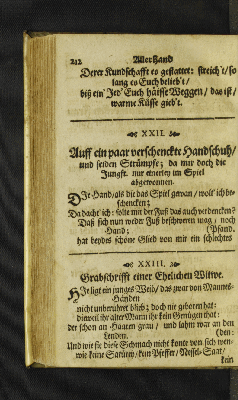 242 Allerhand
Derer Kundschafft es gestattet: streich't/ so
lang es Euch beliebt/
biß ein' Jed' Euch häiffe Weggen/ das ist/
warme Küsse gieb't.
XXII.
Auff ein paar verschenckte Handschuh/
und seiden Strümpfe; da mir doch die
Jungfr. nur einerley im Spiel
abgewonnen.
DJe Hand/ als die das Spiel gewan/ wolt' ich be-
schencken;
Da dacht' ich: solte mit der Fuß das auch verdencken?
Daß sich nun weder Fuß beschweren mag/ noch
Hand; (Pfand.
hat beydes schöne Glied von mir ein schlechtes
XXIII.
Grabschrifft einer Ehelichen Witwe.
HJe ligt ein junges Weib/ das zwar von Mannes-
Händen
nicht unberühret blieb; doch nie geboren hat:
dieweil ihr alter Mann ihr kein Genügen that:
der schon an Haaren grau/ und lahm war an den
Lenden. (den:
Und wie sie diese Schmach nicht konte von sich wen-
wie kune Satüren/ kun Pfeffer/ Nessel-Saat/
kein